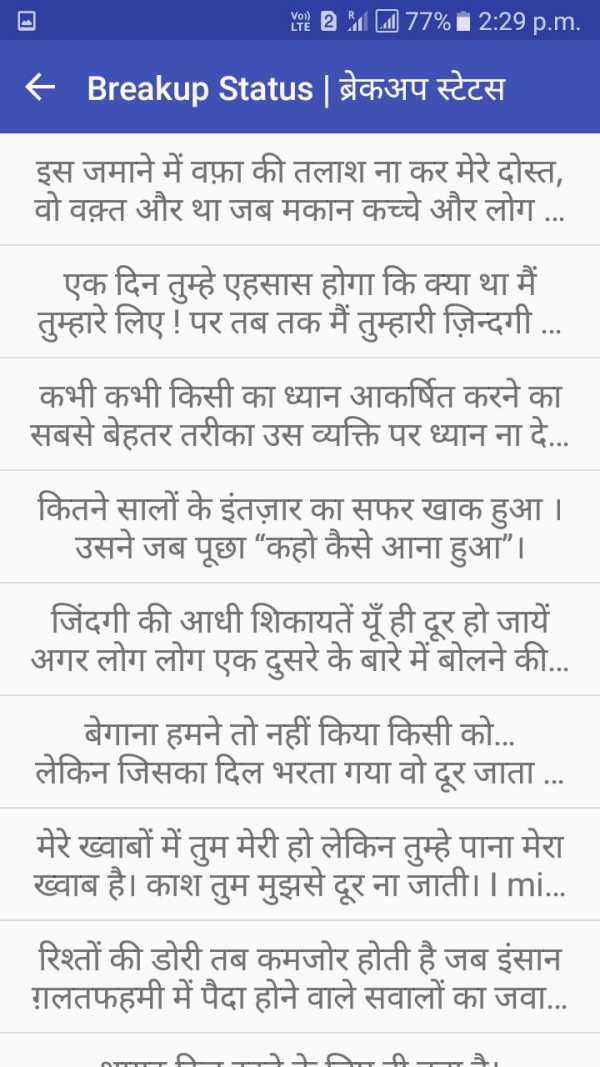 Vo)) LTE 2 R 77% 2:29 p.m.
Breakup Status | ब्रेकअप स्टेटस
इस जमाने में वफ़ा की तलाश ना कर मेरे दोस्त,
वो वक़्त और था जब मकान कच्चे और लोग ...
एक दिन तुम्हे एहसास होगा कि क्या था मैं
तुम्हारे लिए ! पर तब तक मैं तुम्हारी ज़िन्दगी ...
कभी कभी किसी का ध्यान आकर्षित करने का
सबसे बेहतर तरीका उस व्यक्ति पर ध्यान ना दे...
कितने सालों के इंतज़ार का सफर खाक हुआ ।
उसने जब पूछा “कहो कैसे आना हुआ”।
जिंदगी की आधी शिकायतें यूँ ही दूर हो जायें
अगर लोग लोग एक दुसरे के बारे में बोलने की...
बेगाना हमने तो नहीं किया किसी को...
लेकिन जिसका दिल भरता गया वो दूर जाता ...
मेरे ख्वाबों में तुम मेरी हो लेकिन तुम्हे पाना मेरा
ख्वाब है। काश तुम मुझसे दूर ना जाती। I mi...
रिश्तों की डोरी तब कमजोर होती है जब इंसान
ग़लतफहमी में पैदा होने वाले सवालों का जवा...